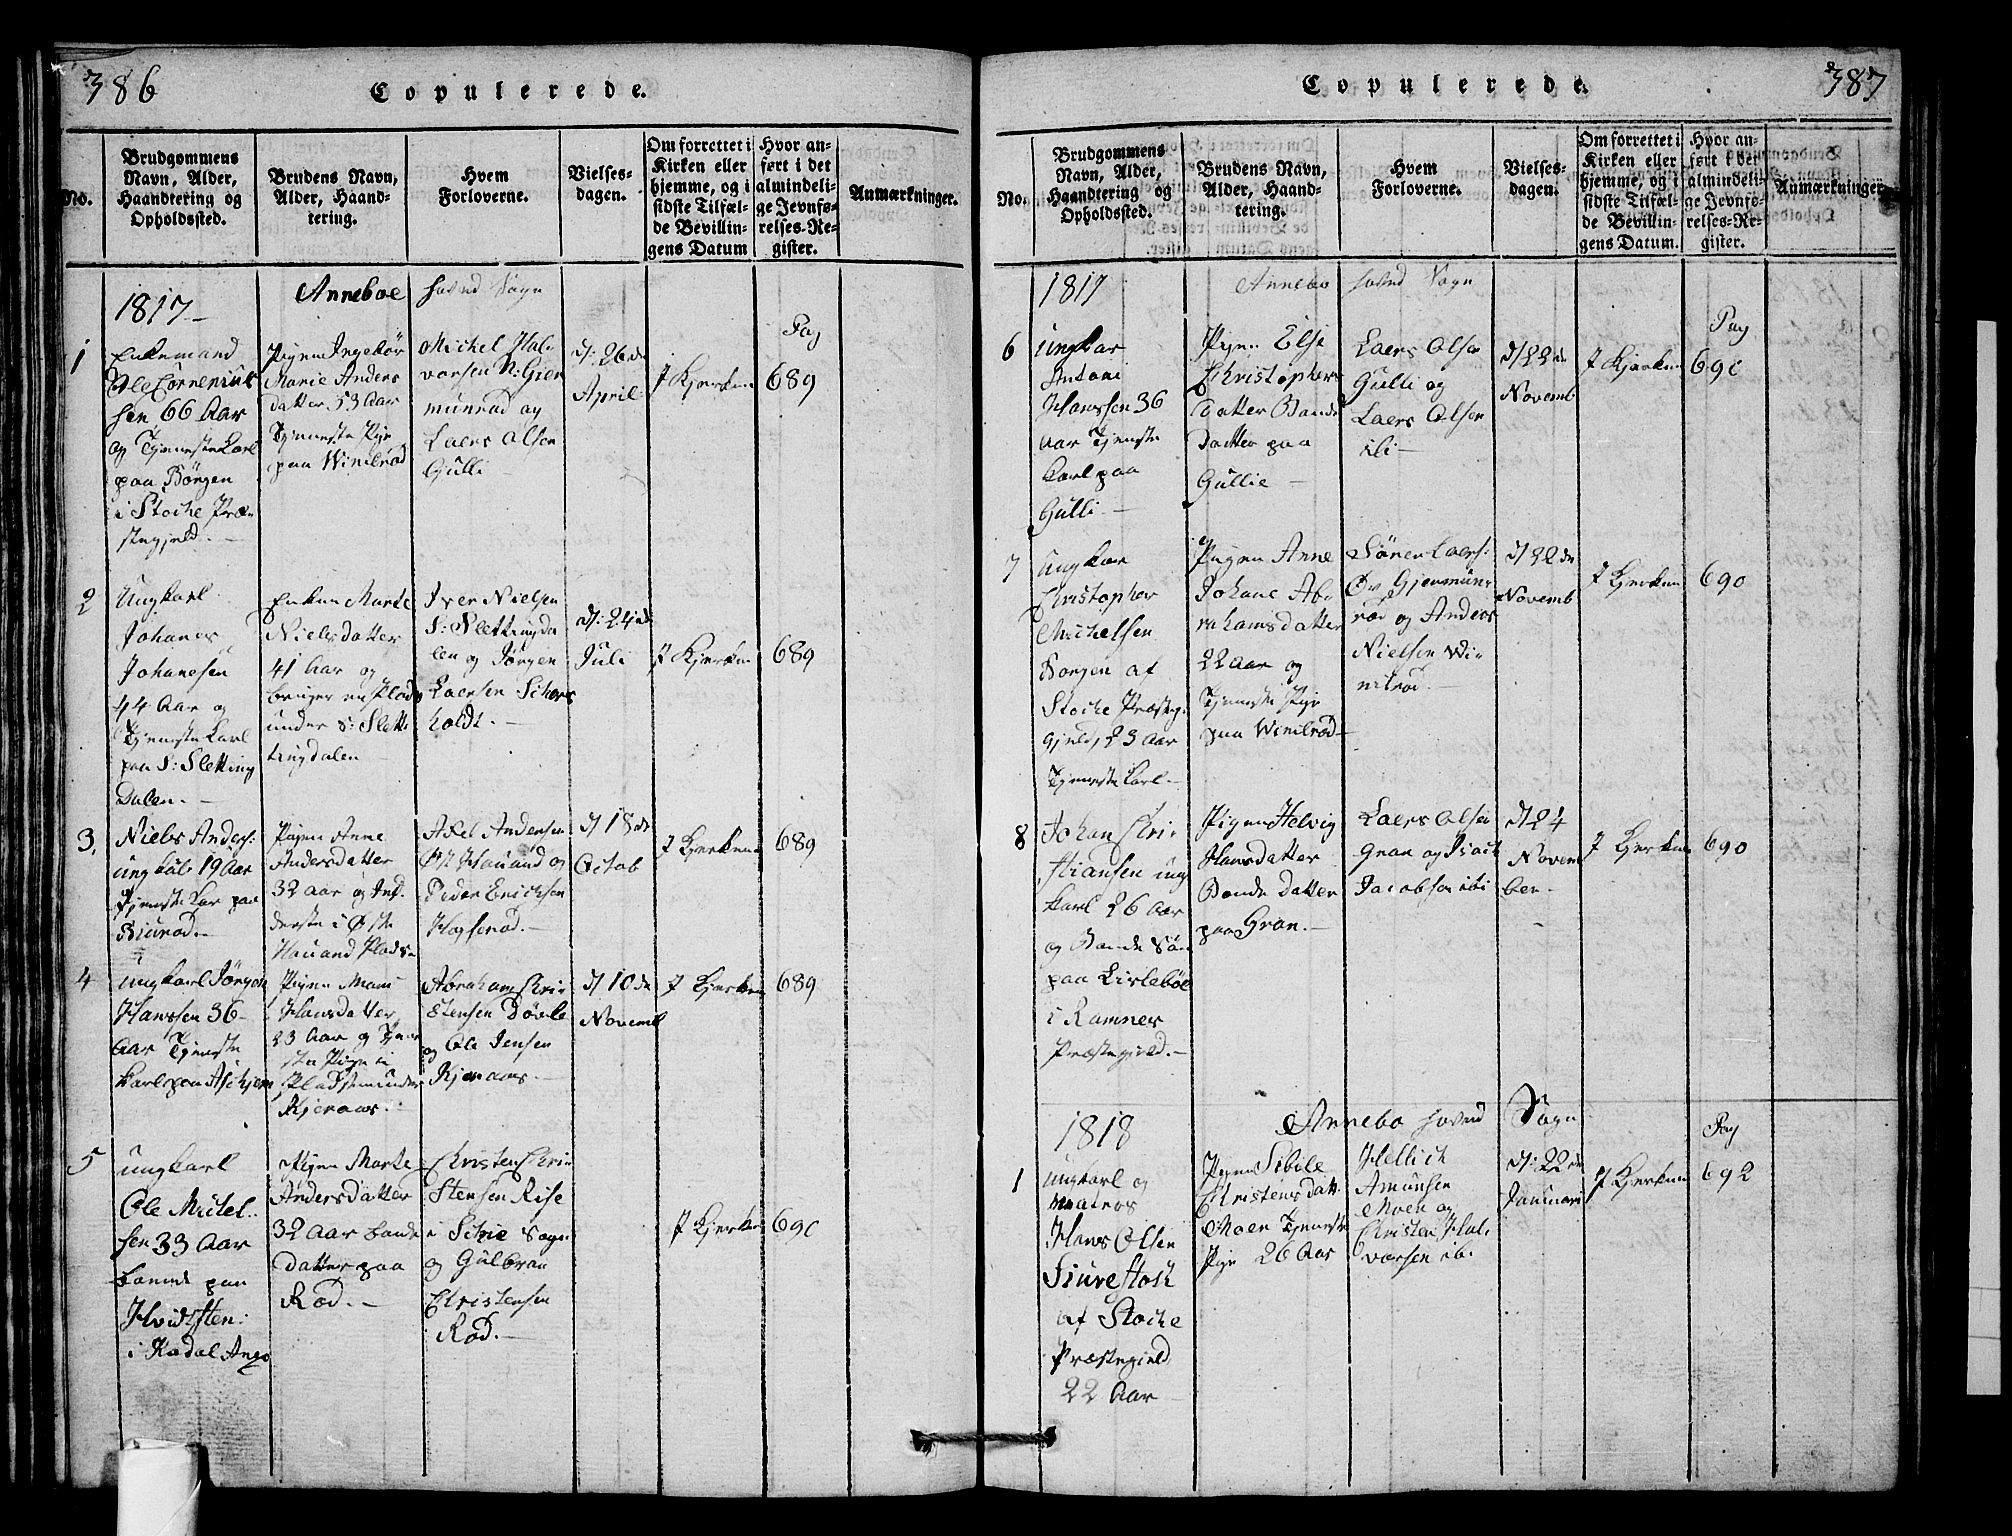 386
Copulerede.
No.
Brudgommens
Navn, Alder,
Haandtering og
Opholdssted.
Brudens Navn,
Alder, Haand-
tering.
Hvem
Forloverne.
Vielses-
dagen.
Om forrettet i
Kirken eller
hjemme, og i
sidste Tilfæl-
de Bevillin-
gens Datum
Hvor an-
ført i det
almindeli-
ge Jevnfø-
relses-Re-
gister.
Anmærkninger.
1817
Anneboe hoved Sogn
Pag
1
Enkemand
Ole Cornenius
sen 66 Aar
og Tjenestekarl
paa Borgen
i Stocke Præ-
stegjeld.
Pigen Ingebor
Marie Anders
datter 53 Aar
Tjeneste Pige
paa Wimelrød
Michel Hal-
vorsen N: Gjer
munrød og
Laers Olsen
Gulli
d: 26de
April
I Kjerken
689
2
Ungkarl
Johanes
Johanesen
44 Aar og
Tjenestekarl
paa S: Sletting
Dalen.
Enken Marte
Nielsdatter
41 Aar og
bruger en Plads
under S: Slett-
ingdalen
Iver Nielsen
S: Slettingda
len og Jørgen
Laersen Schous
holdt.
d: 24de
Juli
I Kjerken
689
3.
Niels Anders:
ungkal 19 Aar
Tjeneste Kar paa
Biurød.
Pigen Anne
Andersdatter
32 Aar og Ind-
derste i Øst
Hauand Plads
Axel Andersen
Øst Hauand og
Peder Ericksen
Hogsrød.
d/18de
Octob
I Kjerken
689
4
ungkarl Jørgen
Hanssen 36
Aar Tjeneste
karl paa Aschjem
Pigen Maria
Hansdatter
23 Aar og Tjene
ste Pige i
Pladsen under
Kjeraas.
Abraham Chri-
stensen Døvle
og Ole Jensen
Kjeraas.
d/10de
Novemb
I Kjerken
689
5
ungkarl
Ole Michel-
sen 33 Aar
bonde paa
Hvidsten
i Kodal Anex
Pigen Marte
Andersdatter
32 Aar bonde
datter paa
Rød.
Christen Chri-
stensen Rise
i Schie Sogn
og Gulbran
Christensen
Rød.
I Kjerken
690
387
Copulerede.
No.
Brudgommens
Navn, Alder,
Haandtering og
Opholdssted.
Brudens Navn,
Alder, Haand-
tering.
Hvem
Forloverne.
Vielses-
dagen.
Om forrettet i
Kirken eller
hjemme, og i
sidste Tilfæl-
de Bevillin-
gens Datum.
Hvor an-
ført i det
almindeli-
ge Jevnfø-
relses-Re-
gister.
Anmærkninger.
1817
Annebo hoved Sogn
Pag
6
ungkar
Antoni
Hanssen 36
aar Tjeneste
karl paa
Gulli
Pigen Else
Christophers
Datter Bonde
Datter paa
Gullie
Laers Olsen
Gulli og
Laers Olsen
ibi
d/22de
Novemb
I Kjerken
690
7
ungkar
Christopher
Michelsen
Borgen af
Stocke Præste-
gjeld, 23 Aar
Tjeneste karl.
Pigen Anne
Johane Ab-
rahamsdatter
22 Aar og
Tjeneste Pige
paa Wimelrød
Søren Laers:
Øv Gjermun-
rød og Anders
Nielsen Wi-
melrød.
d/22de
Novemb
I Kjerken
690
8
Johan Chri-
stiansen ung
karl 26 Aar
og Bonde Søn
paa Lislebøe
i Ramnes
Præstegield.
Pigen Helvig
Hansdatter
Bonde Datter
paa Gran.
Laers Olsen
Gran og Isack
Jacobsen ibi
d/24
Novem
ber
I Kjerken
690
1818
Annebo hoved Sogn
Pag
1
ungkarl og
matros
Hans Olsen
Siurestock
af Stocke
Præstegield
22 Aar
Pigen Sibile
Christensdatt
Moen Tjeneste
Pige 26 Aar
Hellich
Amunsen
Moen og
Christen Hal-
vorsen ibi
d: 22de
Januari
I Kjerken
692